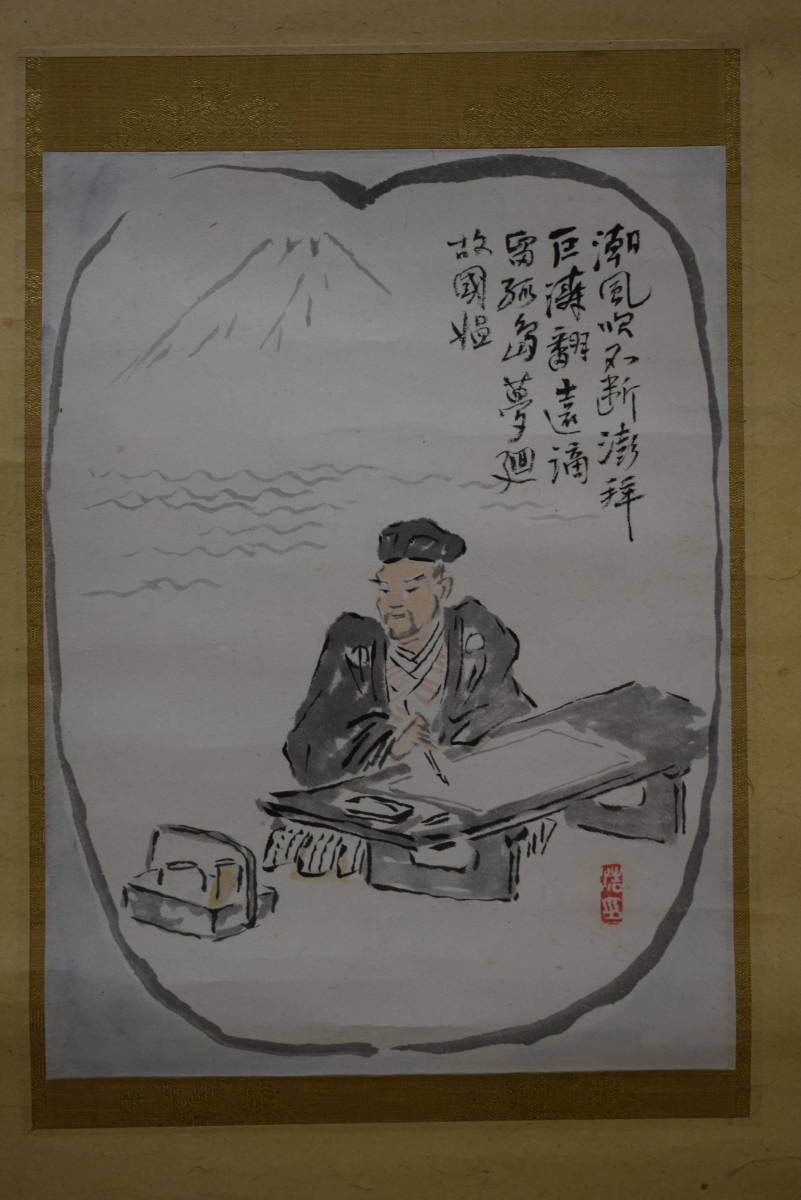 潮風吹不断澎拜
巨濤翻遠謫
留孤島夢廻
故國媼
浩